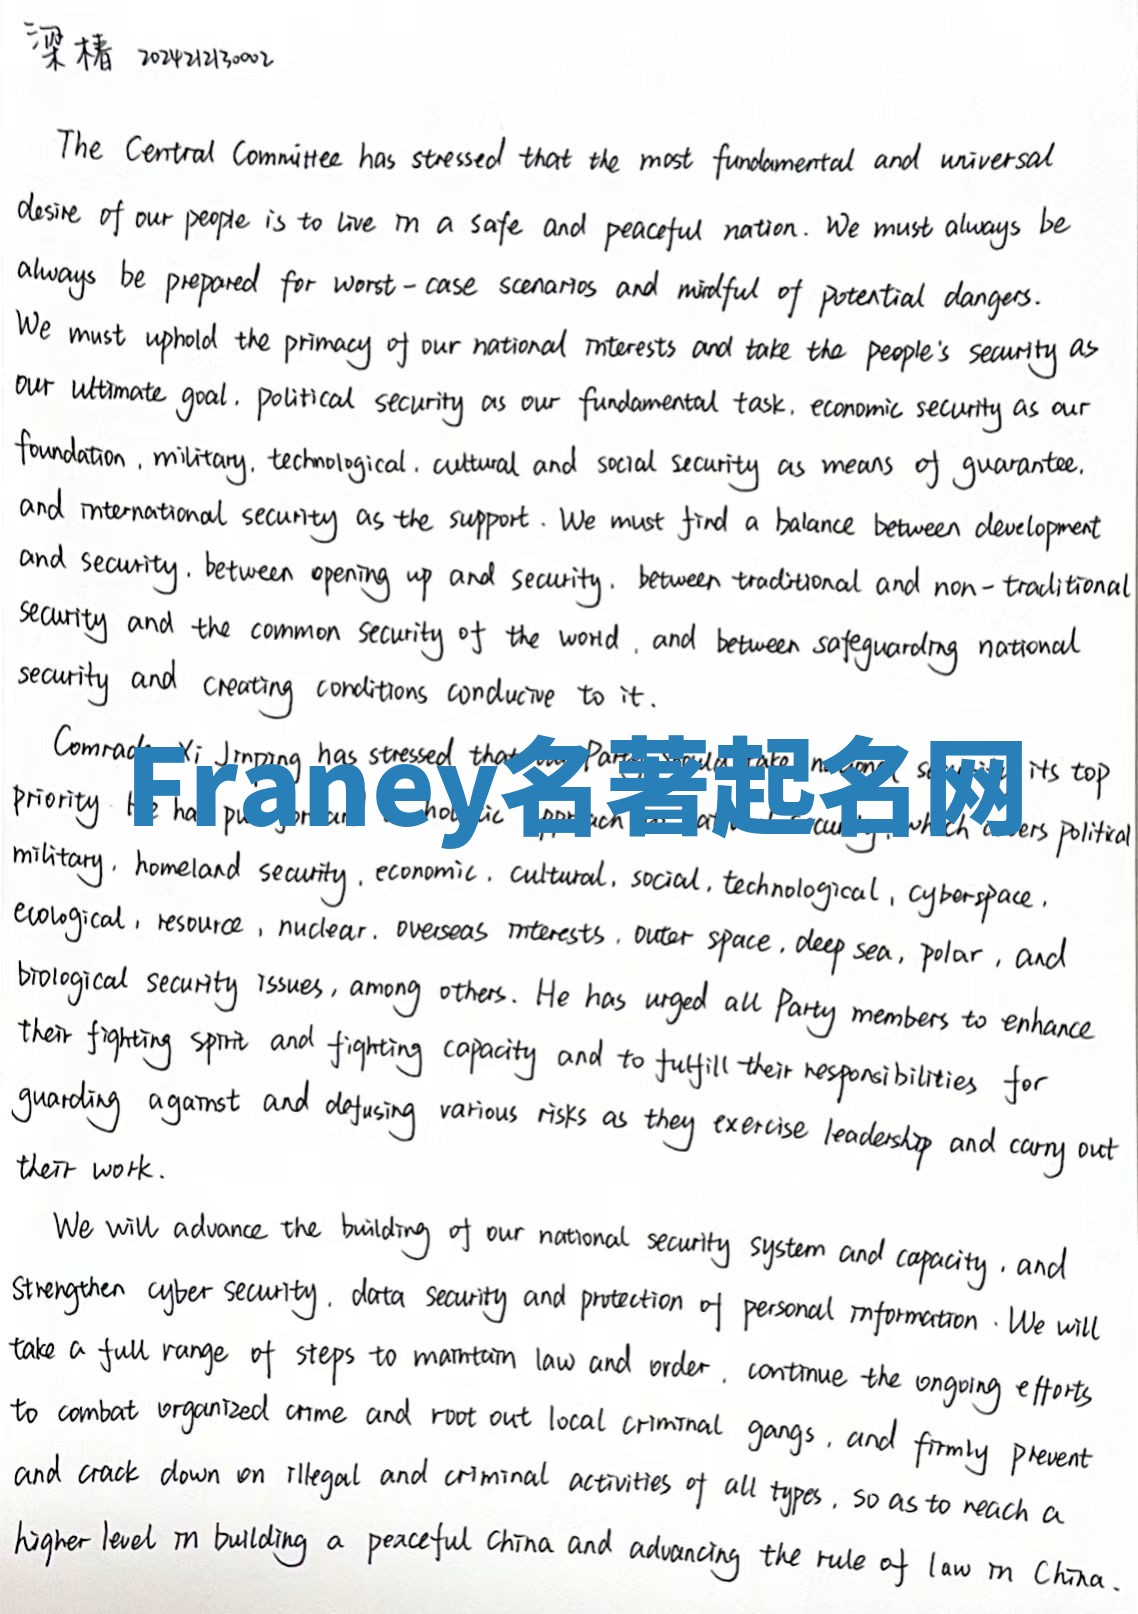 梁椿 2024212130002
The Central Committee has stressed that the most fundamental and universal
desire of our people is to live in a safe and peaceful nation. We must always be
always be prepared for worst-case scenarios and mindful of potential dangers.
We must uphold the primacy of our national interests and take the people's security as
our ultimate goal, political security as our fundamental task, economic security as our
foundation, military, technological, cultural and social security as means of guarantee,
and international security as the support. We must find a balance between development
and security, between opening up and security, between traditional and non-traditional
security and the common security of the world, and between safeguarding national
security and creating conditions conducive to it.
Comrade Xi Jinping has stressed that Party take national its top
priority. He has holistic approach security, which covers political
Franey名著起名网
military, homeland security, economic, cultural, social, technological, cyberspace,
ecological, resource, nuclear, overseas interests, outer space, deep sea, polar, and
biological security issues, among others. He has urged all Party members to enhance
their fighting spirit and fighting capacity and to fulfill their responsibilities for
guarding against and defusing various risks as they exercise leadership and carry out
their work.
We will advance the building of our national security system and capacity, and
strengthen cyber security, data security and protection of personal information. We will
take a full range of steps to maintain law and order, continue the ongoing efforts
to combat organized crime and root out local criminal gangs, and firmly prevent
and crack down on illegal and criminal activities of all types, so as to reach a
higher level in building a peaceful China and advancing the rule of law in China.